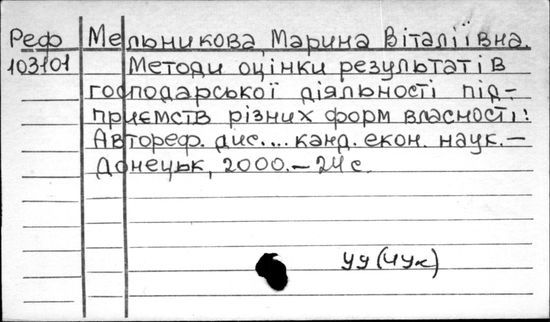 Реф Мельникова, Марина Віталіївна.
103701 Методи оцінки результатів
господарської діяльності під-
приємств різних форм власності:
Автореф. дис.... канд. екон. наук.–
Донецьк, 2000.–24с.